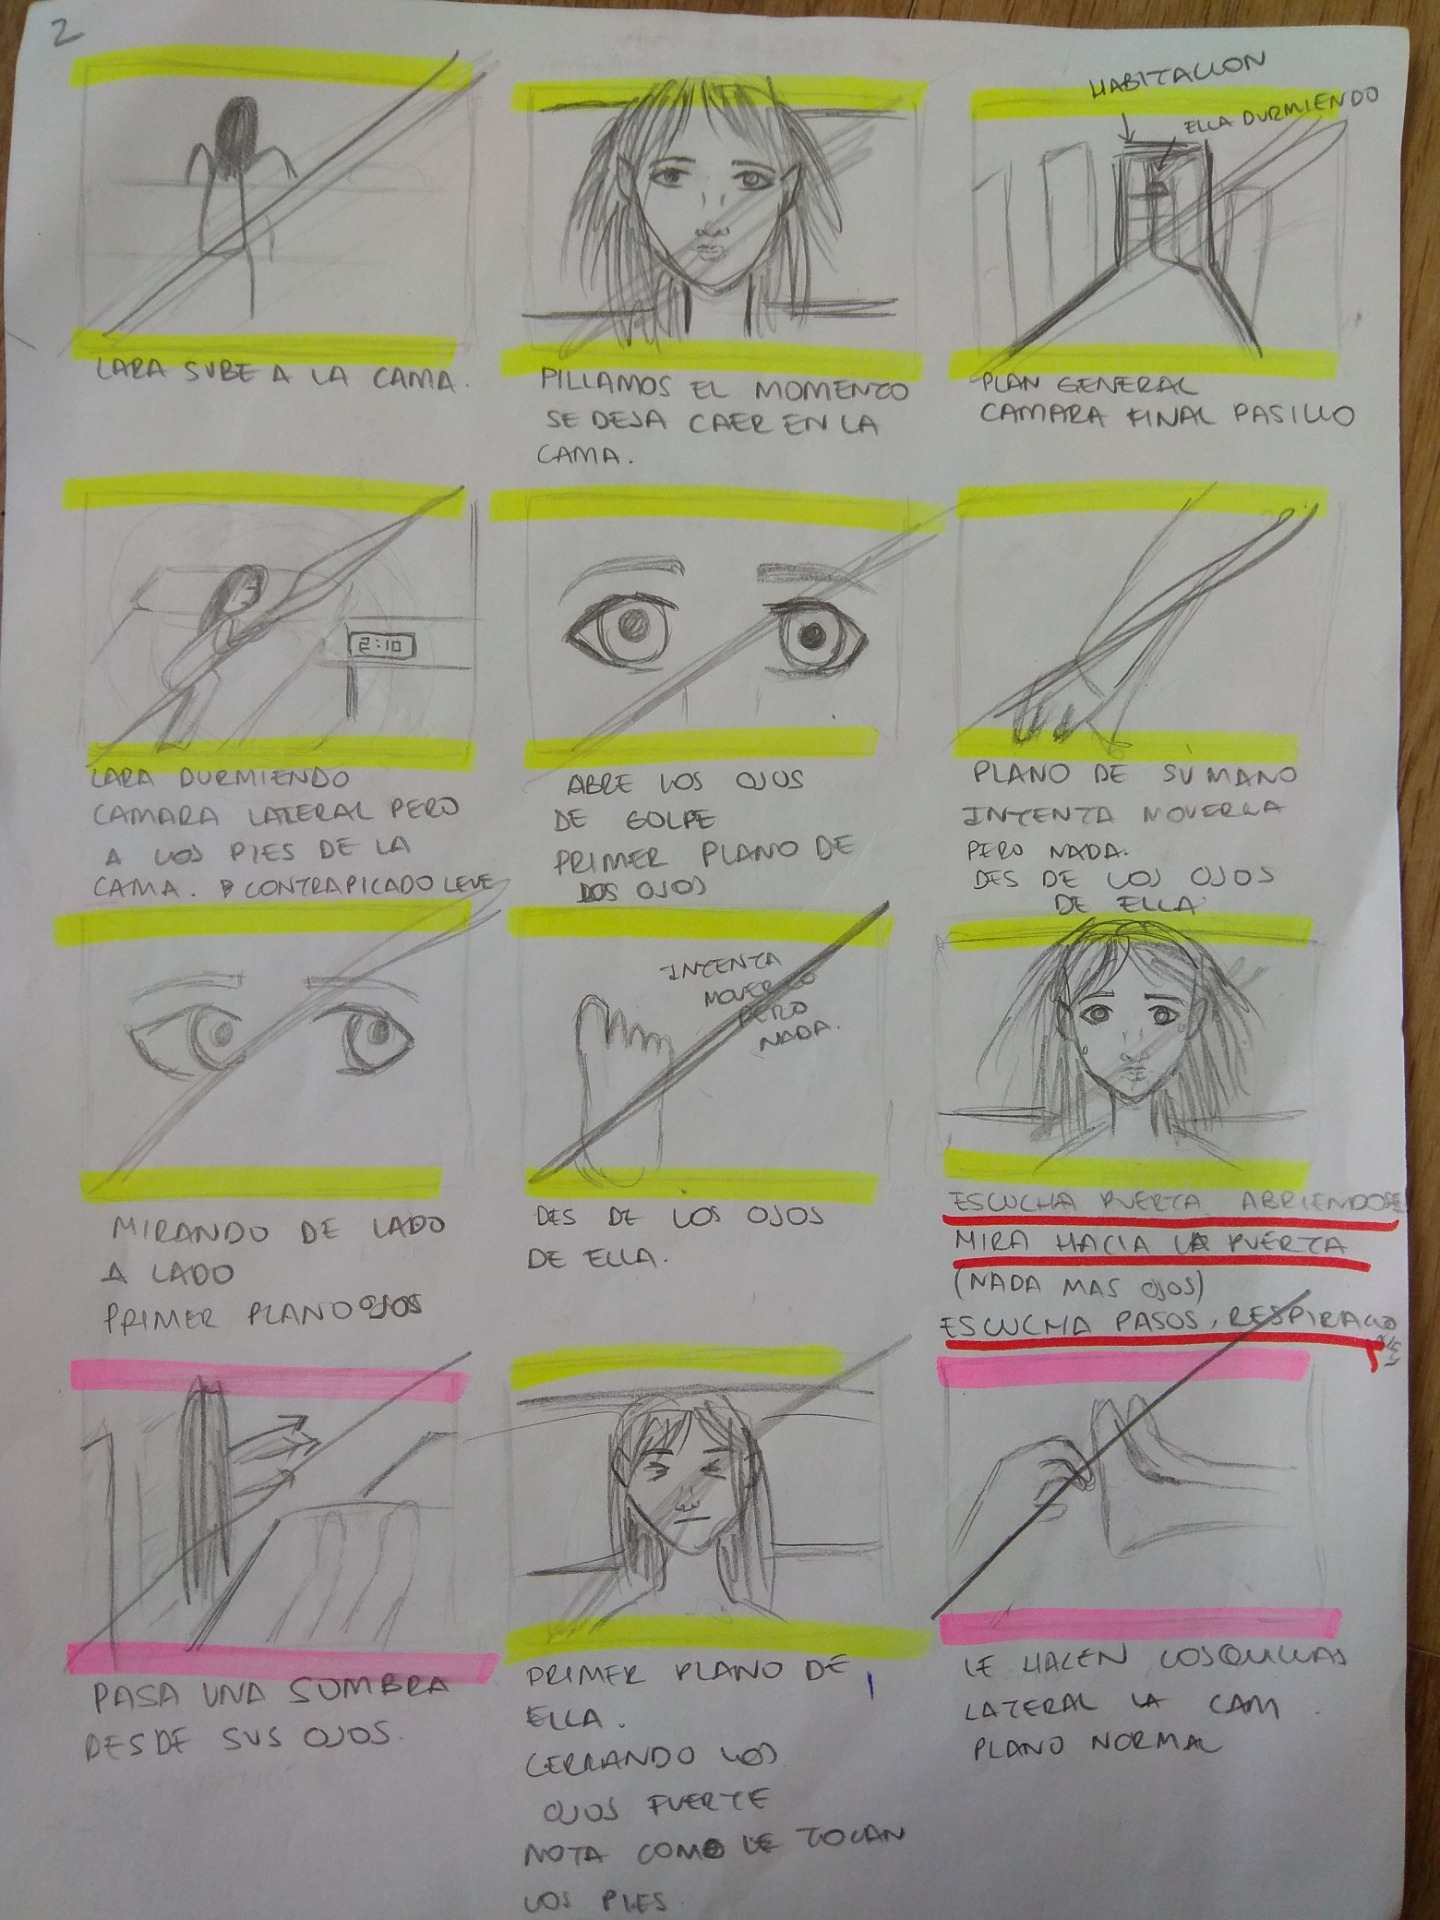 2
LARA SUBE A LA CAMA.
PILLAMOS EL MOMENTO
SE DEJA CAER EN LA
CAMA.
HABITACION
ELLA DURMIENDO
PLAN GENERAL
CAMARA FINAL PASILLO
2:10
LARA DURMIENDO
CAMARA LATERAL PERO
A LOS PIES DE LA
CAMA. CONTRAPICADO LEVE
ABRE LOS OJOS
DE GOLPE
PRIMER PLANO DE
LOS OJOS
PLANO DE SU MANO
INTENTA MOVERLA
PERO NADA.
DES DE LOS OJOS
DE ELLA
MIRANDO DE LADO
A LADO
PRIMER PLANO OJOS
INTENTA
MOVERLO
PERO
NADA.
DES DE LOS OJOS
DE ELLA.
ESCUCHA PUERTA ABRIENDOSE
MIRA HACIA LA PUERTA
(NADA MAS OJOS)
ESCUCHA PASOS, RESPIRACIONES
PASA UNA SOMBRA
DESDE SUS OJOS.
PRIMER PLANO DE
ELLA.
CERRANDO LOS
OJOS FUERTE
NOTA COMO LE TOCAN
LOS PIES.
LE HACEN COSQUILLAS
LATERAL LA CAM
PLANO NORMAL